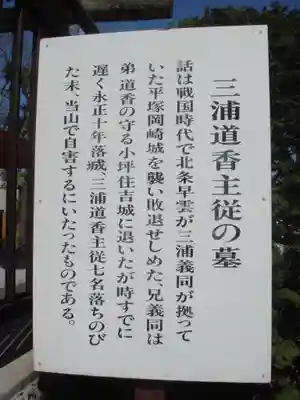 三浦道香主従の墓
話は戦国時代で北条早雲が三浦義同が拠って
いた平塚岡崎城を襲い敗退ぜしめた、兄義同は
弟道香の守る小坪住吉城に退いたが時すでに
遅く永正十年落城、三浦道香主従七名落ちのび
た末、当山で自害するにいたったものである。